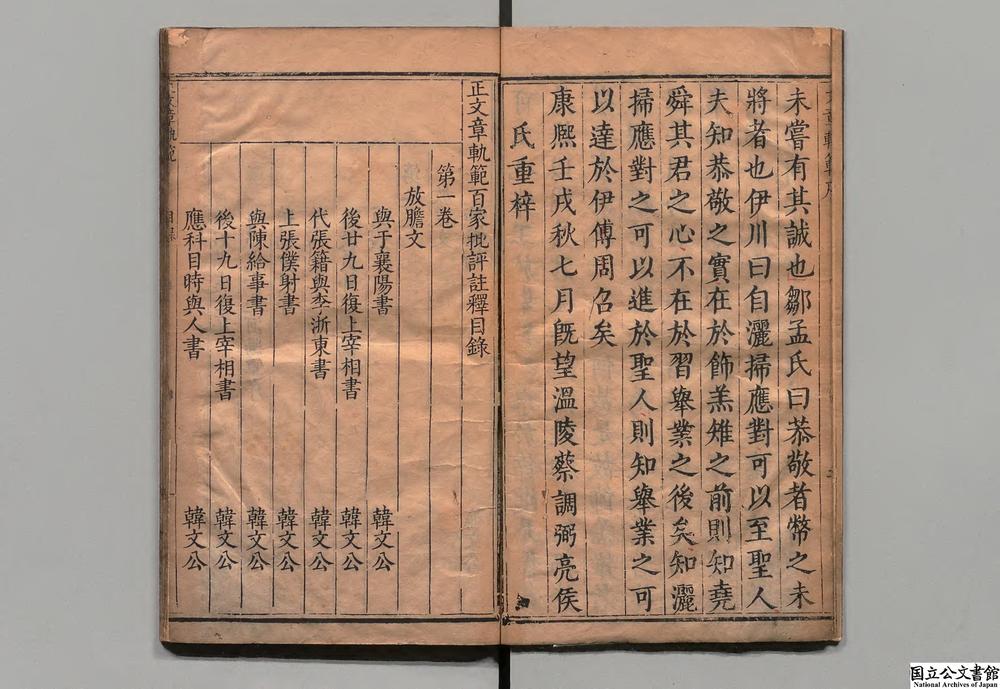 未嘗有其誠也鄒孟氏曰恭敬者幣之未
將者也伊川曰自灑掃應對可以至聖人
夫知恭敬之實在於飾羔雉之前則知堯
舜其君之心不在於習舉業之後矣知灑
掃應對之可以進於聖人則知舉業之可
以達於伊傅周召矣
康熙壬戌秋七月旣望溫陵蔡調弼亮侯
氏重梓
正文章軌範百家批評註釋目錄
第一卷
放膽文
與于襄陽書 韓文公
後廿九日復上宰相書 韓文公
代張籍與李浙東書 韓文公
上張僕射書 韓文公
與陳給事書 韓文公
後十九日復上宰相書 韓文公
應科目時與人書 韓文公
国立公文書館
National Archives of Japan